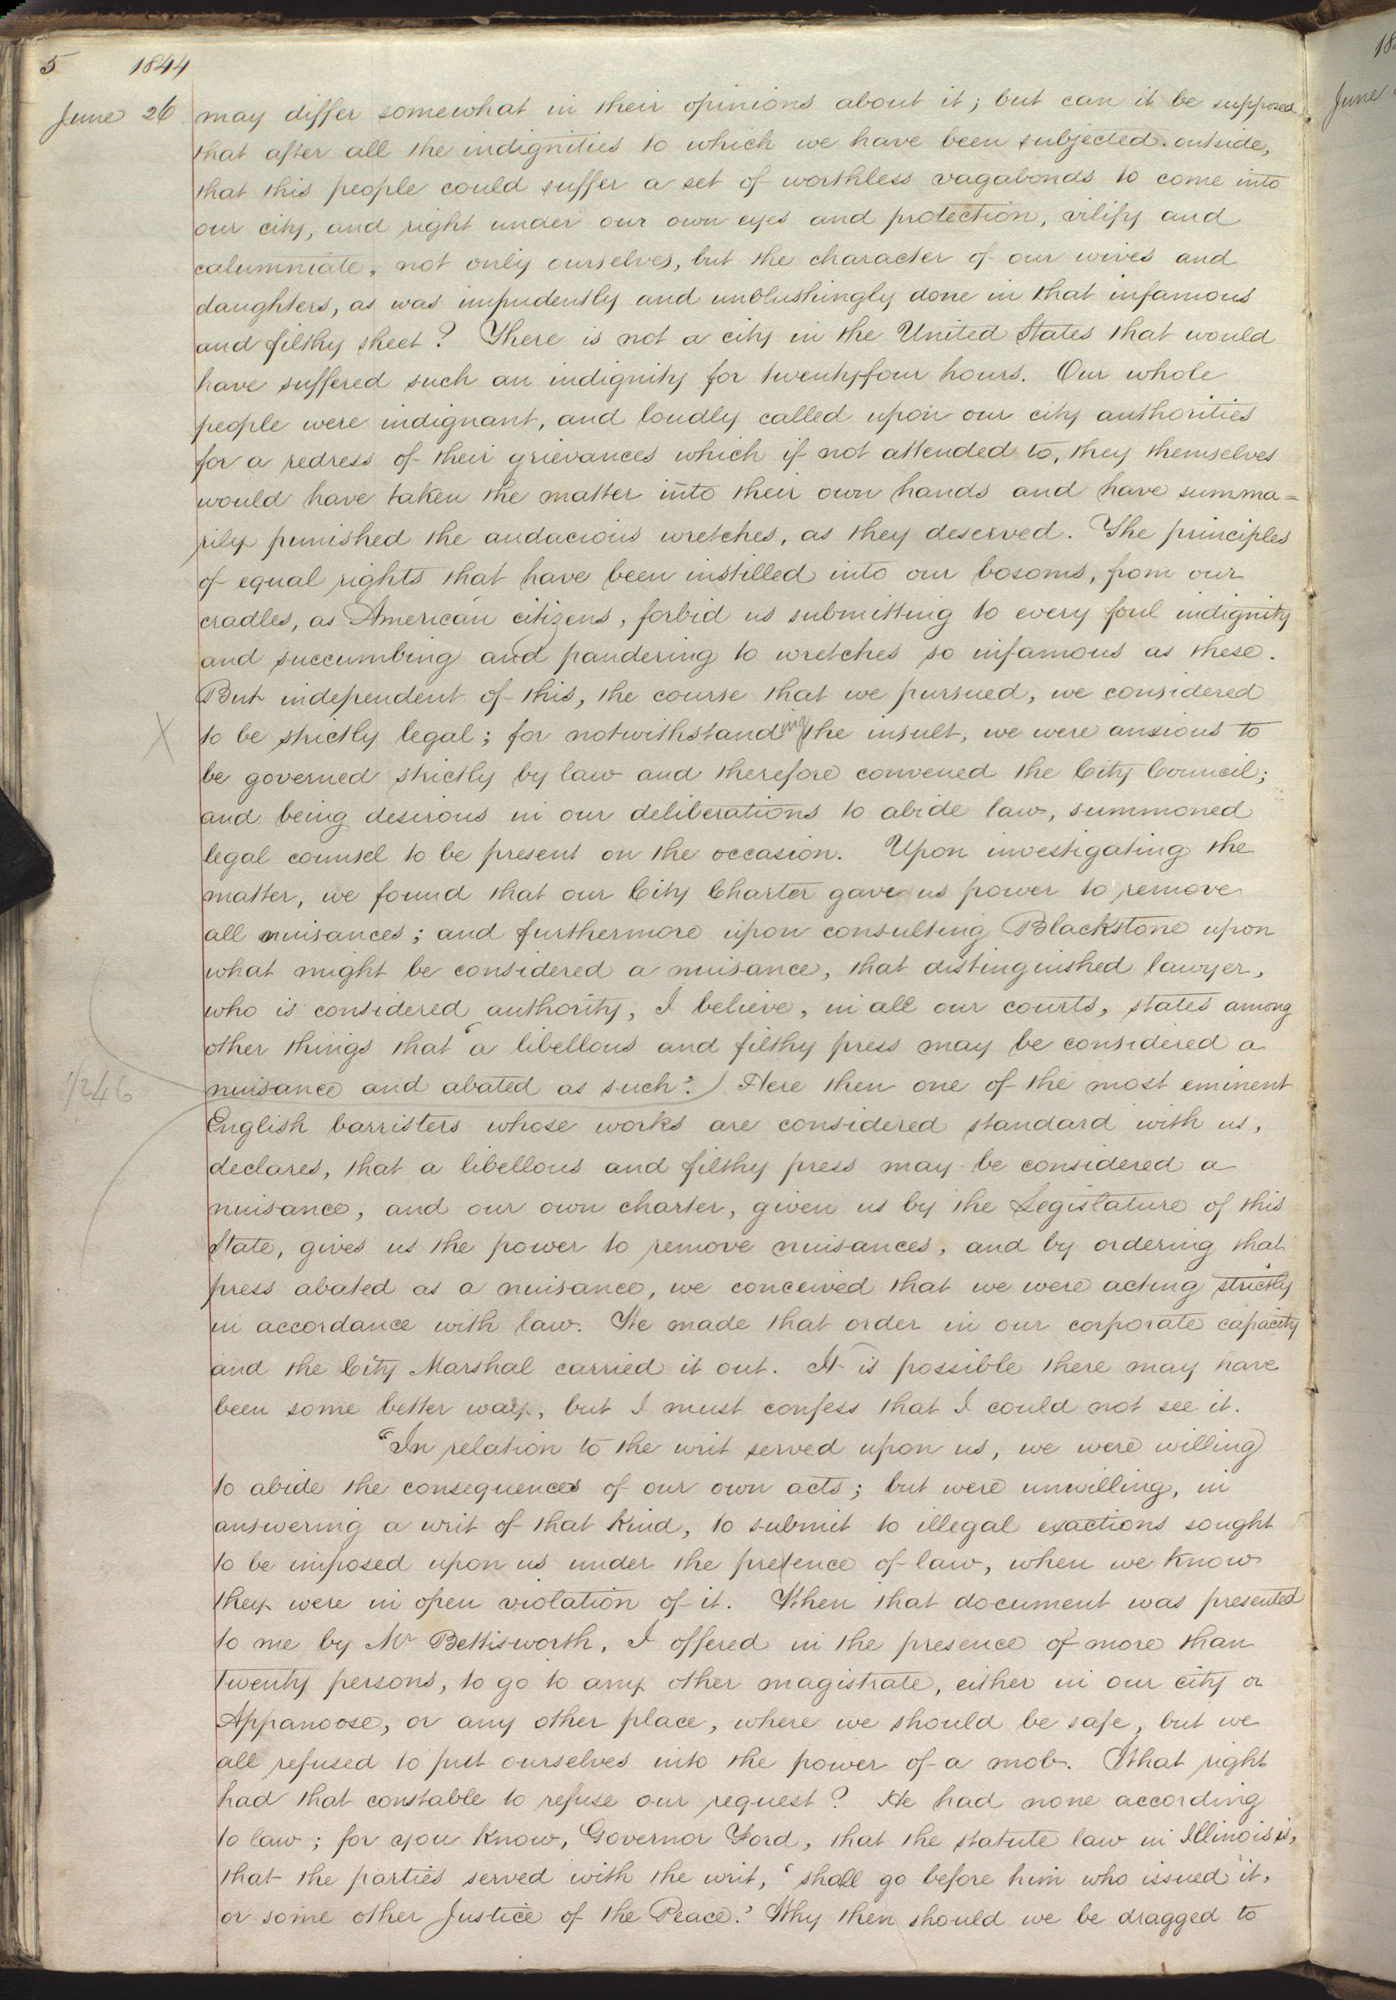 5 1844
June 26 may differ somewhat in their opinions about it; but can it be supposed
that after all the indignities to which we have been subjected outside,
that this people could suffer a set of worthless vagabonds to come into
our city, and right under our own eyes and protection, vilify and
calumniate, not only ourselves, but the character of our wives and
daughters, as was impudently and unblushingly done in that infamous
and filthy sheet? There is not a city in the United States that would
have suffered such an indignity for twenty-four hours. Our whole
people were indignant, and loudly called upon our city authorities
for a redress of their grievances which if not attended to, they themselves
would have taken the matter into their own hands and have summa=
rily punished the audacious wretches, as they deserved. The principles
of equal rights that have been instilled into our bosoms, from our
cradles, as American citizens, forbid us submitting to every foul indignity
and succumbing and pandering to wretches so infamous as these.
But independent of this, the course that we pursued, we considered
X to be strictly legal; for notwithstanding the insult, we were anxious to
be governed strictly by law and therefore convened the City Council;
and being desirous in our deliberations to abide law, summoned
legal counsel to be present on the occasion. Upon investigating the
matter, we found that our City Charter gave us power to remove
all nuisances; and furthermore upon consulting Blackstone upon
what might be considered a nuisance, that distinguished lawyer,
who is considered authority, I believe, in all our courts, states among
other things that "a libellous and filthy press may be considered a
1246 nuisance and abated as such." Here then one of the most eminent
English barristers whose works are considered standard with us,
declares, that a libellous and filthy press may be considered a
nuisance, and our own charter, given us by the Legislature of this
State, gives us the power to remove nuisances, and by ordering that
press abated as a nuisance, we conceived that we were acting strictly
in accordance with law. We made that order in our corporate capacity
and the City Marshal carried it out. It is possible there may have
been some better way, but I must confess that I could not see it.
"In relation to the writ served upon us, we were willing
to abide the consequences of our own acts; but were unwilling, in
answering a writ of that kind, to submit to illegal exactions sought
to be imposed upon us under the pretence of law, when we know
they were in open violation of it. When that document was presented
to me by Mr Bettisworth, I offered in the presence of more than
twenty persons, to go to any other magistrate, either in our city or
Appanoose, or any other place, where we should be safe, but we
all refused to put ourselves into the power of a mob. What right
had that constable to refuse our request? He had none according
to law; for you know, Governor Ford, that the statute law in Illinois is,
that the parties served with the writ, 'shall go before him who issued it,
or some other Justice of the Peace.' Why then should we be dragged to
18
June